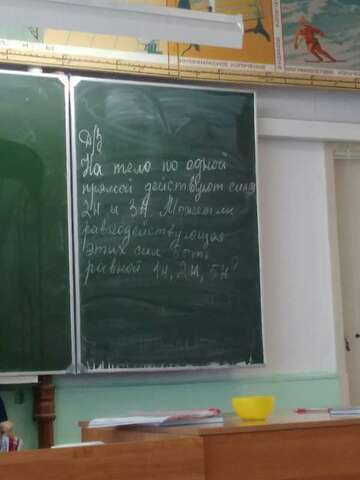 Д/З
На тело по одной
прямой действуют силы
2Н и 3Н Может ли
равнодействующая
этих сил быть
равной 1Н, 2Н, 5Н?